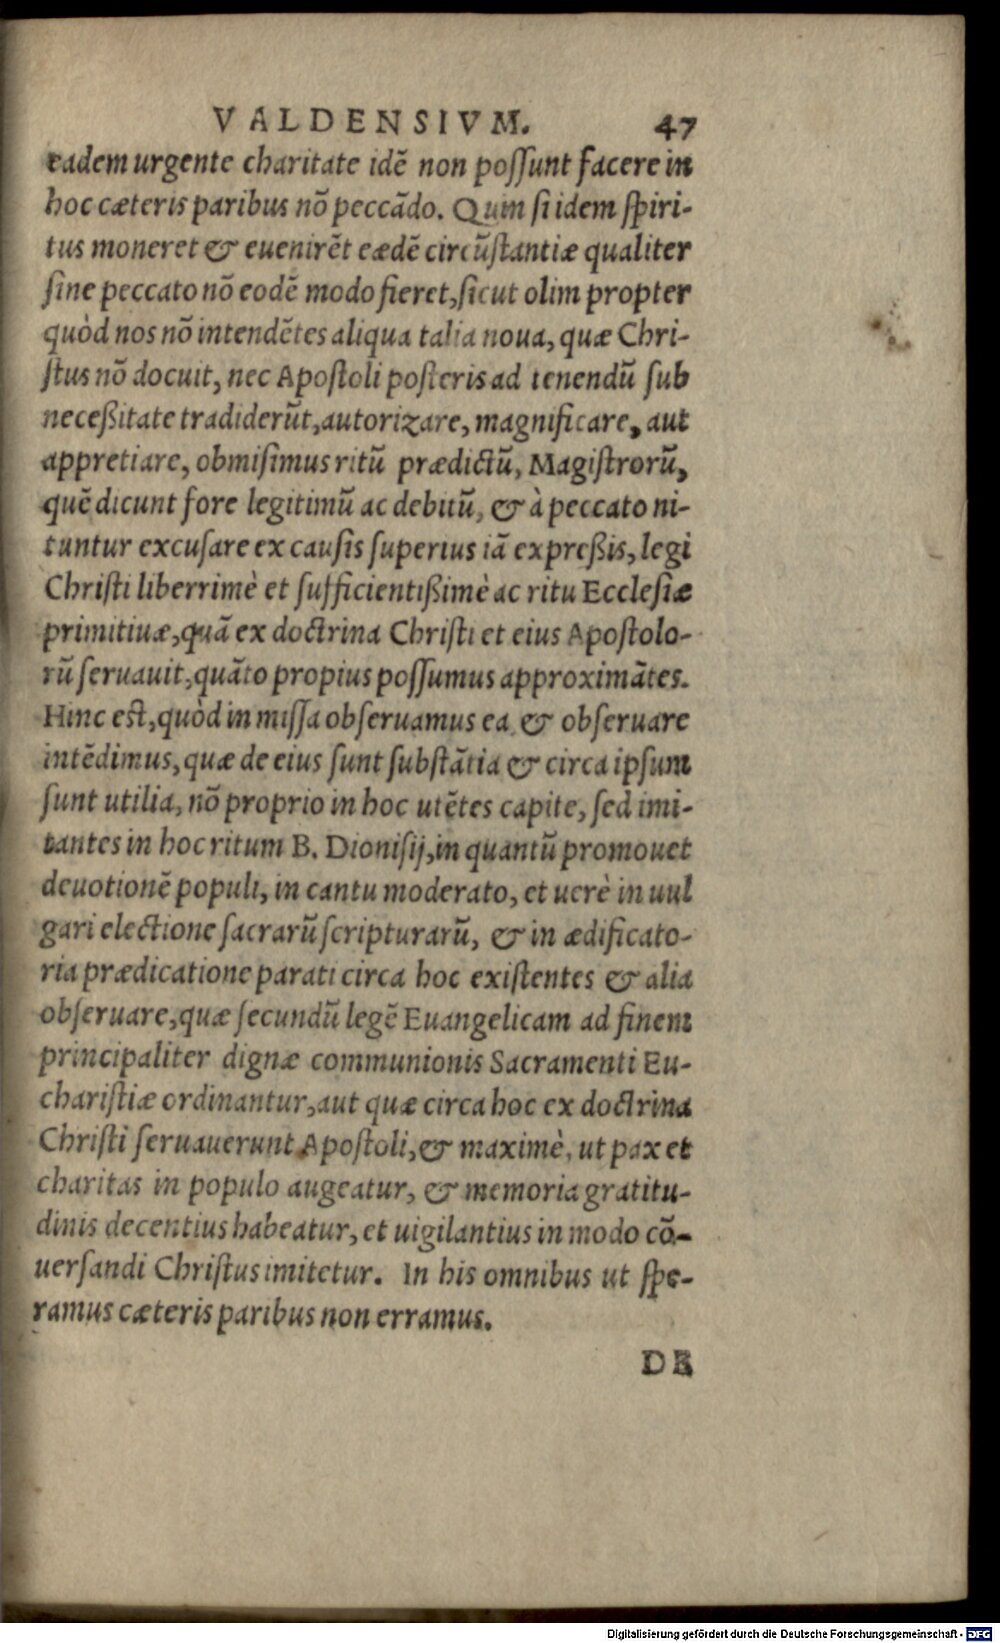 VALDENSIVM. 47
eadem urgente charitate idē non possunt facere in
hoc cæteris paribus nō peccādo. Quin si idem spiri-
tus moneret & euenirēt eædē circūstantiæ qualiter
sine peccato nō eodē modo fieret, sicut olim propter
quòd nos nō intendētes aliqua talia noua, quæ Chri-
stus nō docuit, nec Apostoli posteris ad tenendū sub
neceßitate tradiderūt, autorizare, magnificare, aut
appretiare, obmisimus ritū prædictū, Magistrorū,
quē dicunt fore legitimū ac debitū, & à peccato ni-
tuntur excusare ex causis superius iā expreßis, legi
Christi liberrimè et sufficientißimè ac ritu Ecclesiæ
primitiuæ, quā ex doctrina Christi et eius Apostolo-
rū seruauit, quāto propius possumus approximātes.
Hinc est, quòd in missa obseruamus ea & obseruare
intēdimus, quæ de eius sunt substātia & circa ipsum
sunt utilia, nō proprio in hoc utētes capite, sed imi-
tantes in hoc ritum B. Dionisij, in quantū promouet
deuotionē populi, in cantu moderato, et uerè in uul
gari electione sacrarū scripturarū, & in ædificato-
ria prædicatione parati circa hoc existentes & alia
obseruare, quæ secundū legē Euangelicam ad finem
principaliter dignæ communionis Sacramenti Eu-
charistiæ ordinantur, aut quæ circa hoc ex doctrina
Christi seruauerunt Apostoli, & maximè, ut pax et
charitas in populo augeatur, & memoria gratitu-
dinis decentius habeatur, et uigilantius in modo cō-
uersandi Christus imitetur. In his omnibus ut spe-
ramus cæteris paribus non erramus.
DE
Digitalisierung gefördert durch die Deutsche Forschungsgemeinschaft - DFG